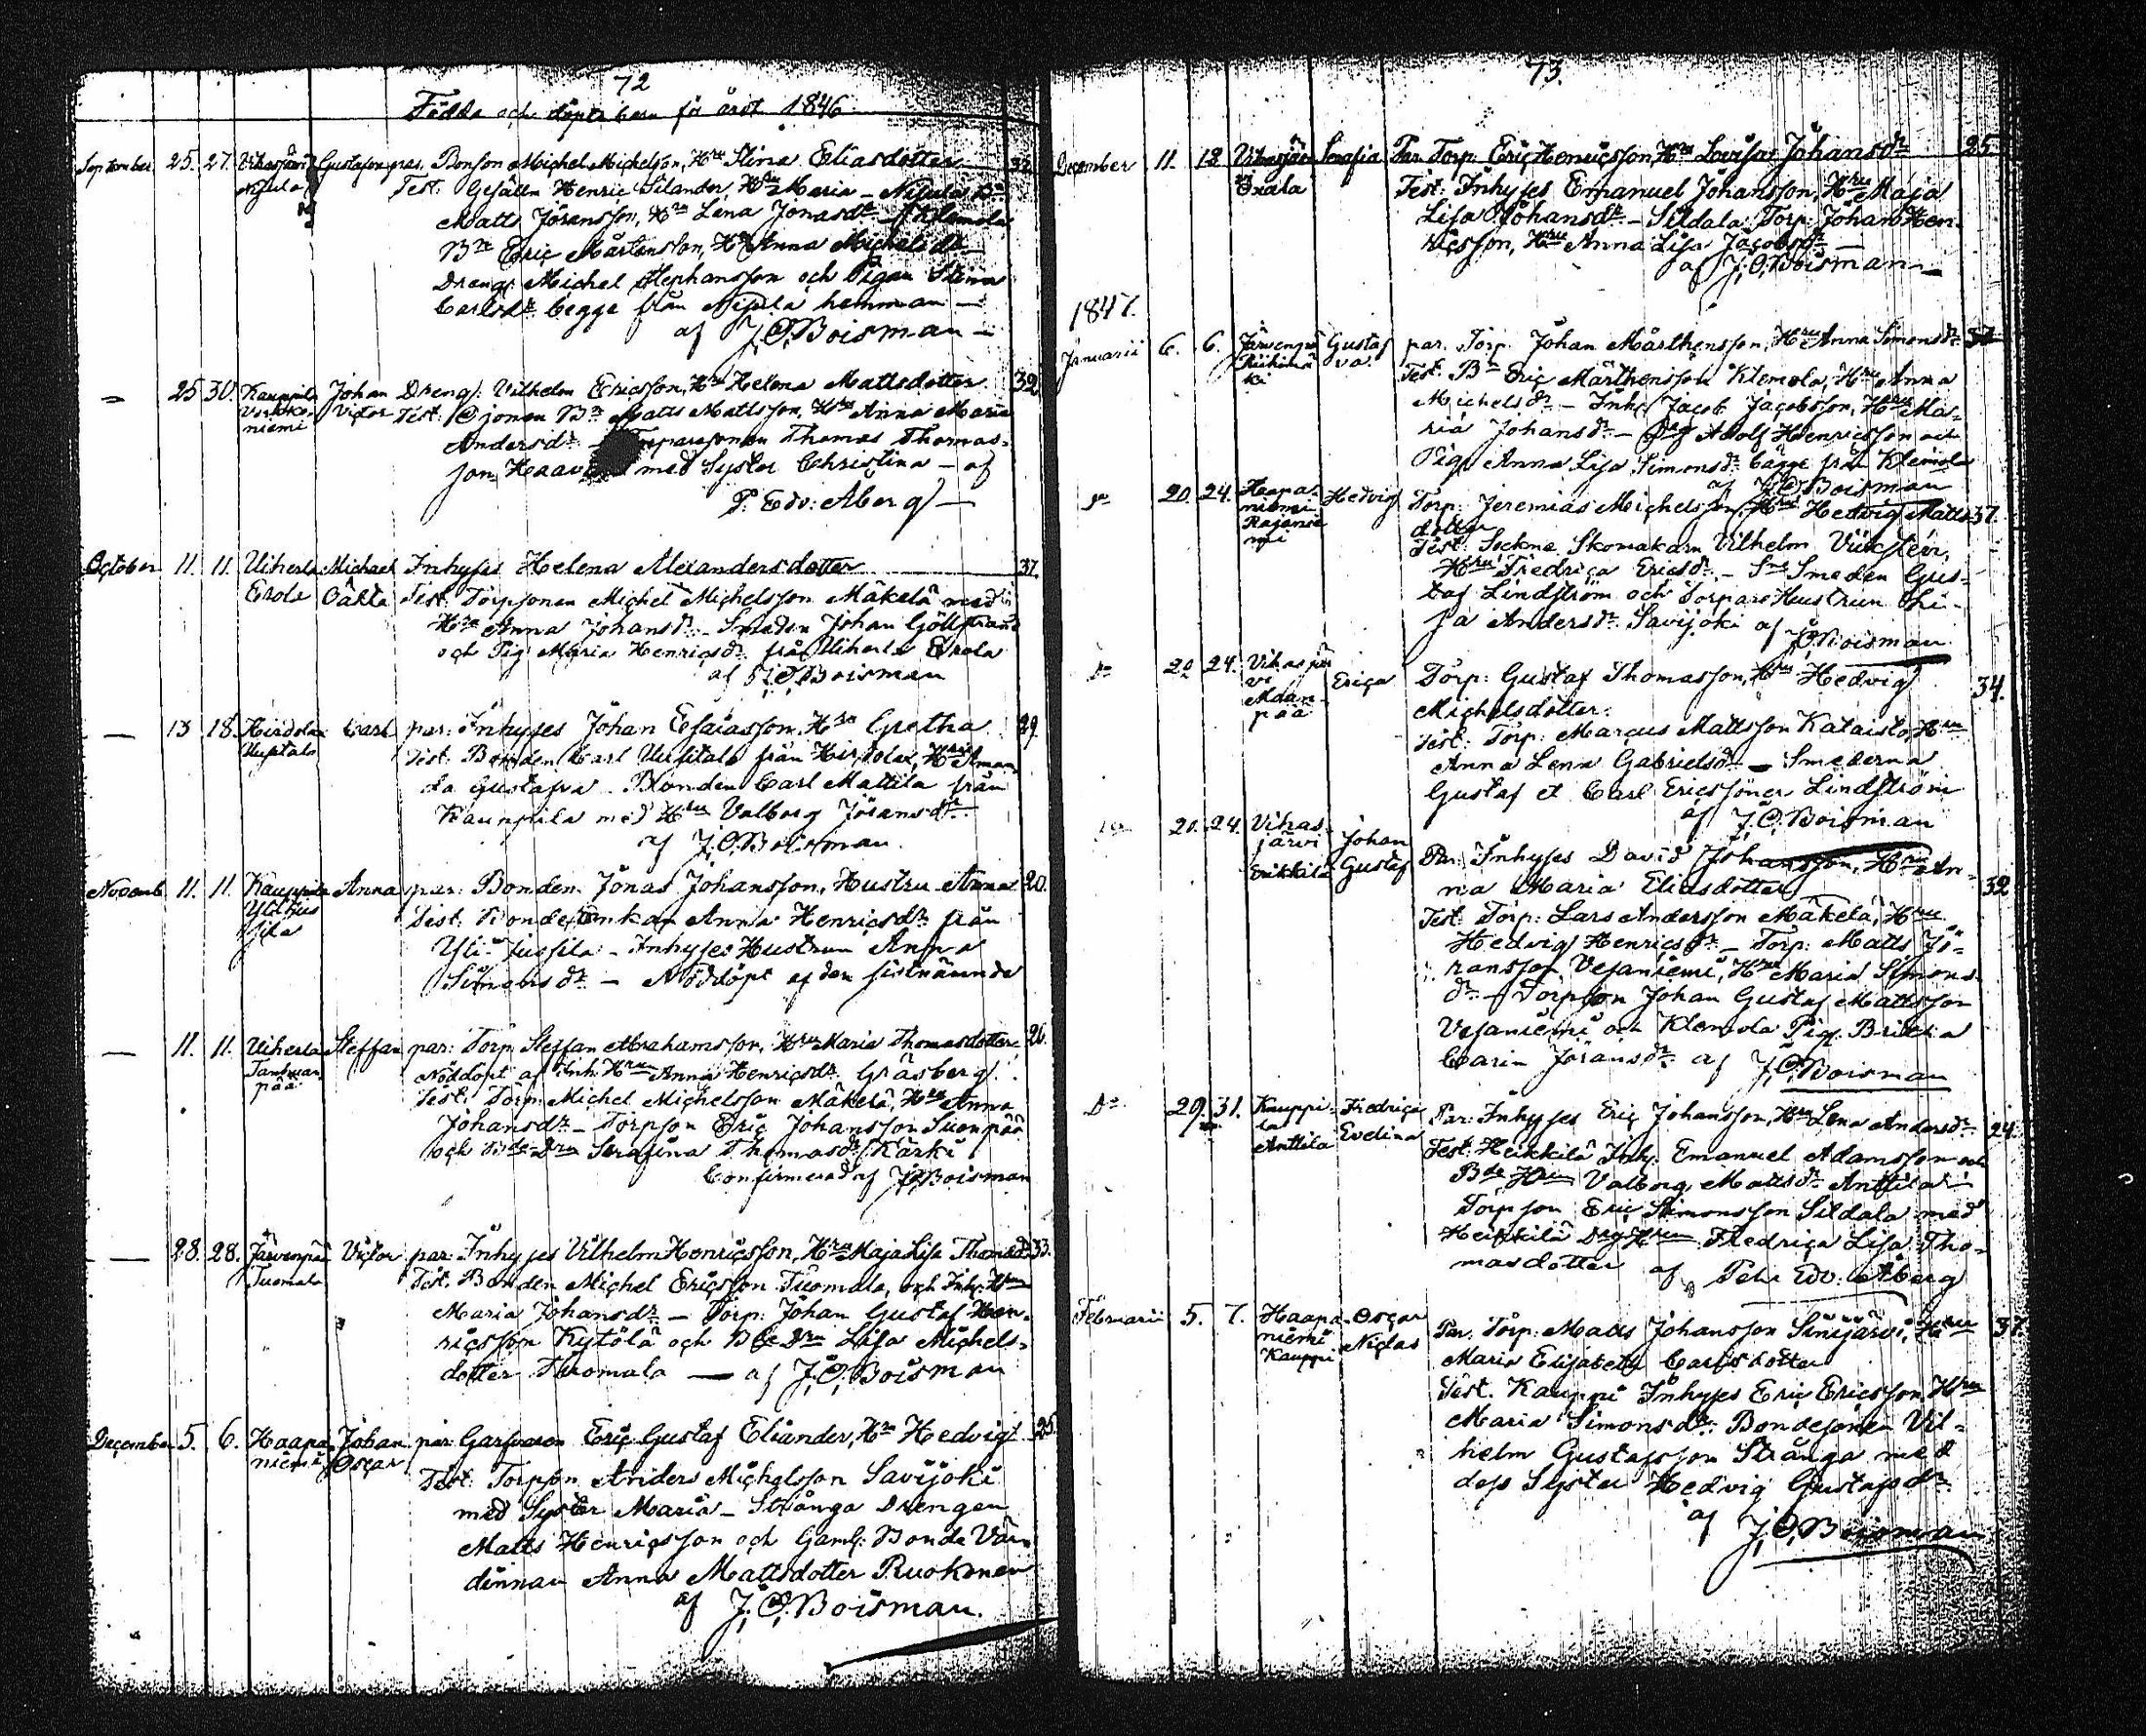 72
Födde och döpte barn för året 1846
September 25. 27. Gustaf par. Bonson Michel Michelsson, Hru Stina Eliasdotter
Nijula Test: Gesällen Henric Silander, Hru Maria - Nijula Bn
Matts Jöransson, Hru Lena Jonasdr - Klemola
Bn Eric Mårtensson, Hru Anna Michelsdr
Dreng. Michel Stephansson och Pigan Stina
Carlsdr begge från Nijula hemman -
af J.O. Boisman -
- 25 30. Kauppila Johan Dreng. Vilhelm Ericsson, Hru Helena Mattsdotter 32
niemi Victor Test: Bn Matts Mattsson, Hru Anna Maria
Andersdr - Thomas Thomas-
son med Syster Christina - af
P. Edv: Aberg -
October 11. 11. Uiherla Michael Inhyses Helena Alexandersdotter 37.
Erola Test. Torpsonen Michel Michelsson Mäkelä med
Hru Anna Johansdr - Smeden Johan
och Pig Maria Henricsdr från Uiherla Erola
af J.O. Boisman
- 13 18. Carl par: Inhyses Johan Esaiasson, Hru Gretha 29.
Test: Bonden Carl från Hru Aman
da Gustafva - Bonden Carl Mattila från
Kauppila med Hru Valborg Jöransdr
af J.O. Boisman.
Novemb 11. 11. Kauppila Anna par: Bonden Jonas Johansson, Hustru Anna 20.
Test: Bondeenkan Anna Henricsdr från
Yli-Jussila - Inhyses Hustrun Anna
Simonsdr - Nöddöpt af den sistnämnde
- 11. 11. Uiherla Steffan par: Torp Steffan Abrahamsson, Hru Maria Thomasdotter 26.
pää Nöddöpt af Inh. Hru Anna Henricsdr Gräsberg.
Test: Torp. Michel Michelsson Mäkelä, Hru Anna
Johansdr - Torpson Eric Johansson Suonpää
och Bde Dru Serafina Thomasdr Kärki
Confirmerad af J.O. Boisman
- 28. 28. Järvenpää Victor par: Inhyses Vilhelm Henricsson, Hru Maja Lisa Thomasdr 33.
Tuomala Test: Bonden Michel Ericsson Tuomala, och Inh. Hru
Maria Johansdr - Torp: Johan Gustaf Hen-
ricsson Kytölä och Bde Dru Lisa Michels-
dotter Tuomala - af J.O. Boisman
December 5. 6. Haapa Johan par: Garfvaren Eric Gustaf Eliander, Hru Hedvig 25.
niemi Oscar Test: Torpson Anders Michelsson Savijoki
med Syster Maria - Strånga Drengen
Matts Henricsson och Gaml: Bonde Vär-
dinnan Anna Mattsdotter Ruokonen
af J.O. Boisman.
73.
December 11. 13 Serafia Par Torp: Eric Henricsson, Hru Lovisa Johansdr 25
Test: Inhyses Emanuel Johansson, Hru Maja
Lisa Johansdr - Sildala Torp: Johan Hen
ricsson, Hru Anna Lisa Jacobsdr -
af J.O. Boisman -
1847.
Januarii 6. 6. Gustaf par. Torp. Johan Mårthensson, Hru Anna Simonsdr
va Test: Bn Eric Mårthensson Klemola, Hru Anna
Michelsdr - Inh. Jacob Jacobsson, Hru Ma-
ria Johansdr - Drg Adolf Henricsson och
Pig. Anna Lisa Simonsdr bägge från Klemola
af J.O. Boisman
Do 20. 24. Haapa- Hedvig Torp: Jeremias Michelsson, Hru Hedvig Matts 37.
niemi dotter
Test: Sockne Skomakarn Vilhelm
Hru Fredrica Ericsdr - Sne Smeden Gus-
taf Lindström och Torpare Hustrun Li-
sa Andersdr Savijoki af J.O. Boisman
Do 20 24. Vihasjär Erica Torp: Gustaf Thomasson, Hru Hedvig 34.
vi Michelsdotter.
Maan- Test: Torp: Marcus Mattsson Kataisto, Hru
pää Anna Lena Gabrielsdr - Smederna
Gustaf et Carl Ericssöner Lindström
af J.O. Boisman
Do 20. 24. Vihas- Johan
järvi Gustaf Par: Inhyses David Johansson, Hru An-
Erikkilä na Maria Eliasdotter 32
Test: Torp: Lars Andersson Mäkelä, Hru
Hedvig Henricsdr - Torp: Matts Jö-
ransson Vesaniemi, Hru Maria Simons-
dr - Torpson Johan Gustaf Mattsson
Vesaniemi och Klemola Pig. Brita
Carin Jöransdr af J.O. Boisman
Do 29. 31. Kauppi- Fredrica Par: Inhyses Eric Johansson, Hru Lena Andersdr 24.
la Evelina Test: Heikkilä Inh. Emanuel Adamsson och
Anttila Bde Hru Valborg Mattsdr Anttila -
Torpson Eric Simonsson Sildala med
Heikkilä Drg Hru Fredrica Lisa Tho-
masdotter af Pehr Edv. Aberg
Februarii 5. 7. Haapa- Oscar Par: Torp: Matts Johansson Sinijärvi, Hru 37.
niemi Niclas Maria Elisabeth Carlsdotter
Kauppi Test. Kauppi Inhyses Eric Ericsson, Hru
Maria Simonsdr. Bondesonen Vil-
helm Gustafsson Strånga med
dess Syster Hedvig Gustafsdr
af J.O. Boisman